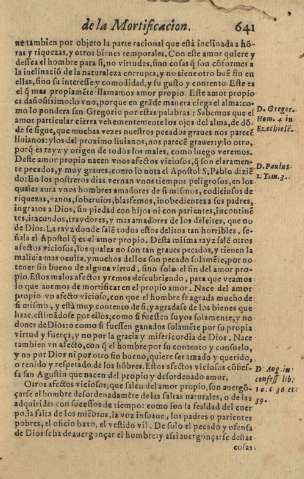 de la Mortificacion. 641
ne tambien por objeto la parte racional que està inclinada a hõ-
ras y riquezas, y otros bienes temporales. Con este amor quiere y
dessea el hombre para si, no virtudes, sino cosas q̃ son cõformes a
la inclinaciõ de la naturaleza corrupta, y no siente otro buẽ fin en
ellas, sino su interesse y comodidad, y su gusto y contento. Este es
el q̃ mas propiamẽte llamamos amor propio. Este amor propio
es dañosissimo lo vno, porque en grãde manera ciega el alma: co-
mo lo pondera san Gregorio por estas palabras: Sabemos que el
amor particular cierra vehementemente los ojos del alma, de dõ-
de se sigue, que muchas vezes nuestros pecados graues nos parecẽ
liuianos: y los del proximo liuianos, nos parecẽ graues: y lo otro,
porq̃ es rayz y origen de todos los males, como luego veremos.
Deste amor propio nacen vnos afectos viciosos, q̃ son claramen-
te pecados, y muy graues, como lo nota el Apostol S. Pablo diziẽ
do: En los postreros dias vernan vnos tiempos peligrosos, en los
quales aura vnos hombres amadores de si mismos, codiciosos de
riquezas, vanos, soberuios, blasfemos, inobedientes a sus padres,
ingratos a Dios, sin piedad con hijos ni con parientes, incontinẽ
tes, iracundos, traydores, y mas amadores de los deleites, que no
de Dios. La rayz donde salẽ todos estos delitos tan horribles, se-
ñala el Apostol q̃ es el amor propio. Desta misma rayz salẽ otros
afectos viciosos, los quales no son tan graues pecados, y tienen la
malicia mas oculta, y muchos dellos son pecado solamẽte, por no
tener fin bueno de alguna virtud, sino solo el fin del amor pro-
pio. Estos malos afectos yremos descubriendo, para que veamos
lo que auemos de mortificar en el propio amor. Nace del amor
propio vn afecto vicioso, con que el hombre se agrada mucho de
si mismo, y està muy contento de si, y agradase de los bienes que
haze, estimãdose por ellos, como si fuessen suyos solamente, y no
dones de Dios: o como si fuessen ganados solamẽte por su propia
virtud y fuerça, y no por la gracia y misericordia de Dios. Nace
tambien vn afecto, con q̃ el hombre por su contento y consuelo,
y no por Dios ni por otro fin bueno, quiere ser amado y querido,
o tenido y respetado de los hõbres. Estos afectos viciosos cõfies-
sa san Agustin que nacen del propio y desordenado amor.
Otros afectos viciosos, que salen del amor propio, son auergõ-
çarse el hombre desordenadamẽte de las faltas naturales, o de las
adquiridas con sucessos de tiempo: como son la fealdad del cuer
po, la falta de los miẽbros, la voz insuaue, los padres o parientes
pobres, el oficio baxo, el vestido vil. De solo el pecado y ofensa
de Dios se ha de auergonçar el hombre: y assi auergonçarse destas
cosas,
D. Gregor.
Hom. 4. in
Ezechielẽ.
D. Paulus.
2. Tim. 3.
D. Aug. in
confess. lib.
10. c. 36. et
39.